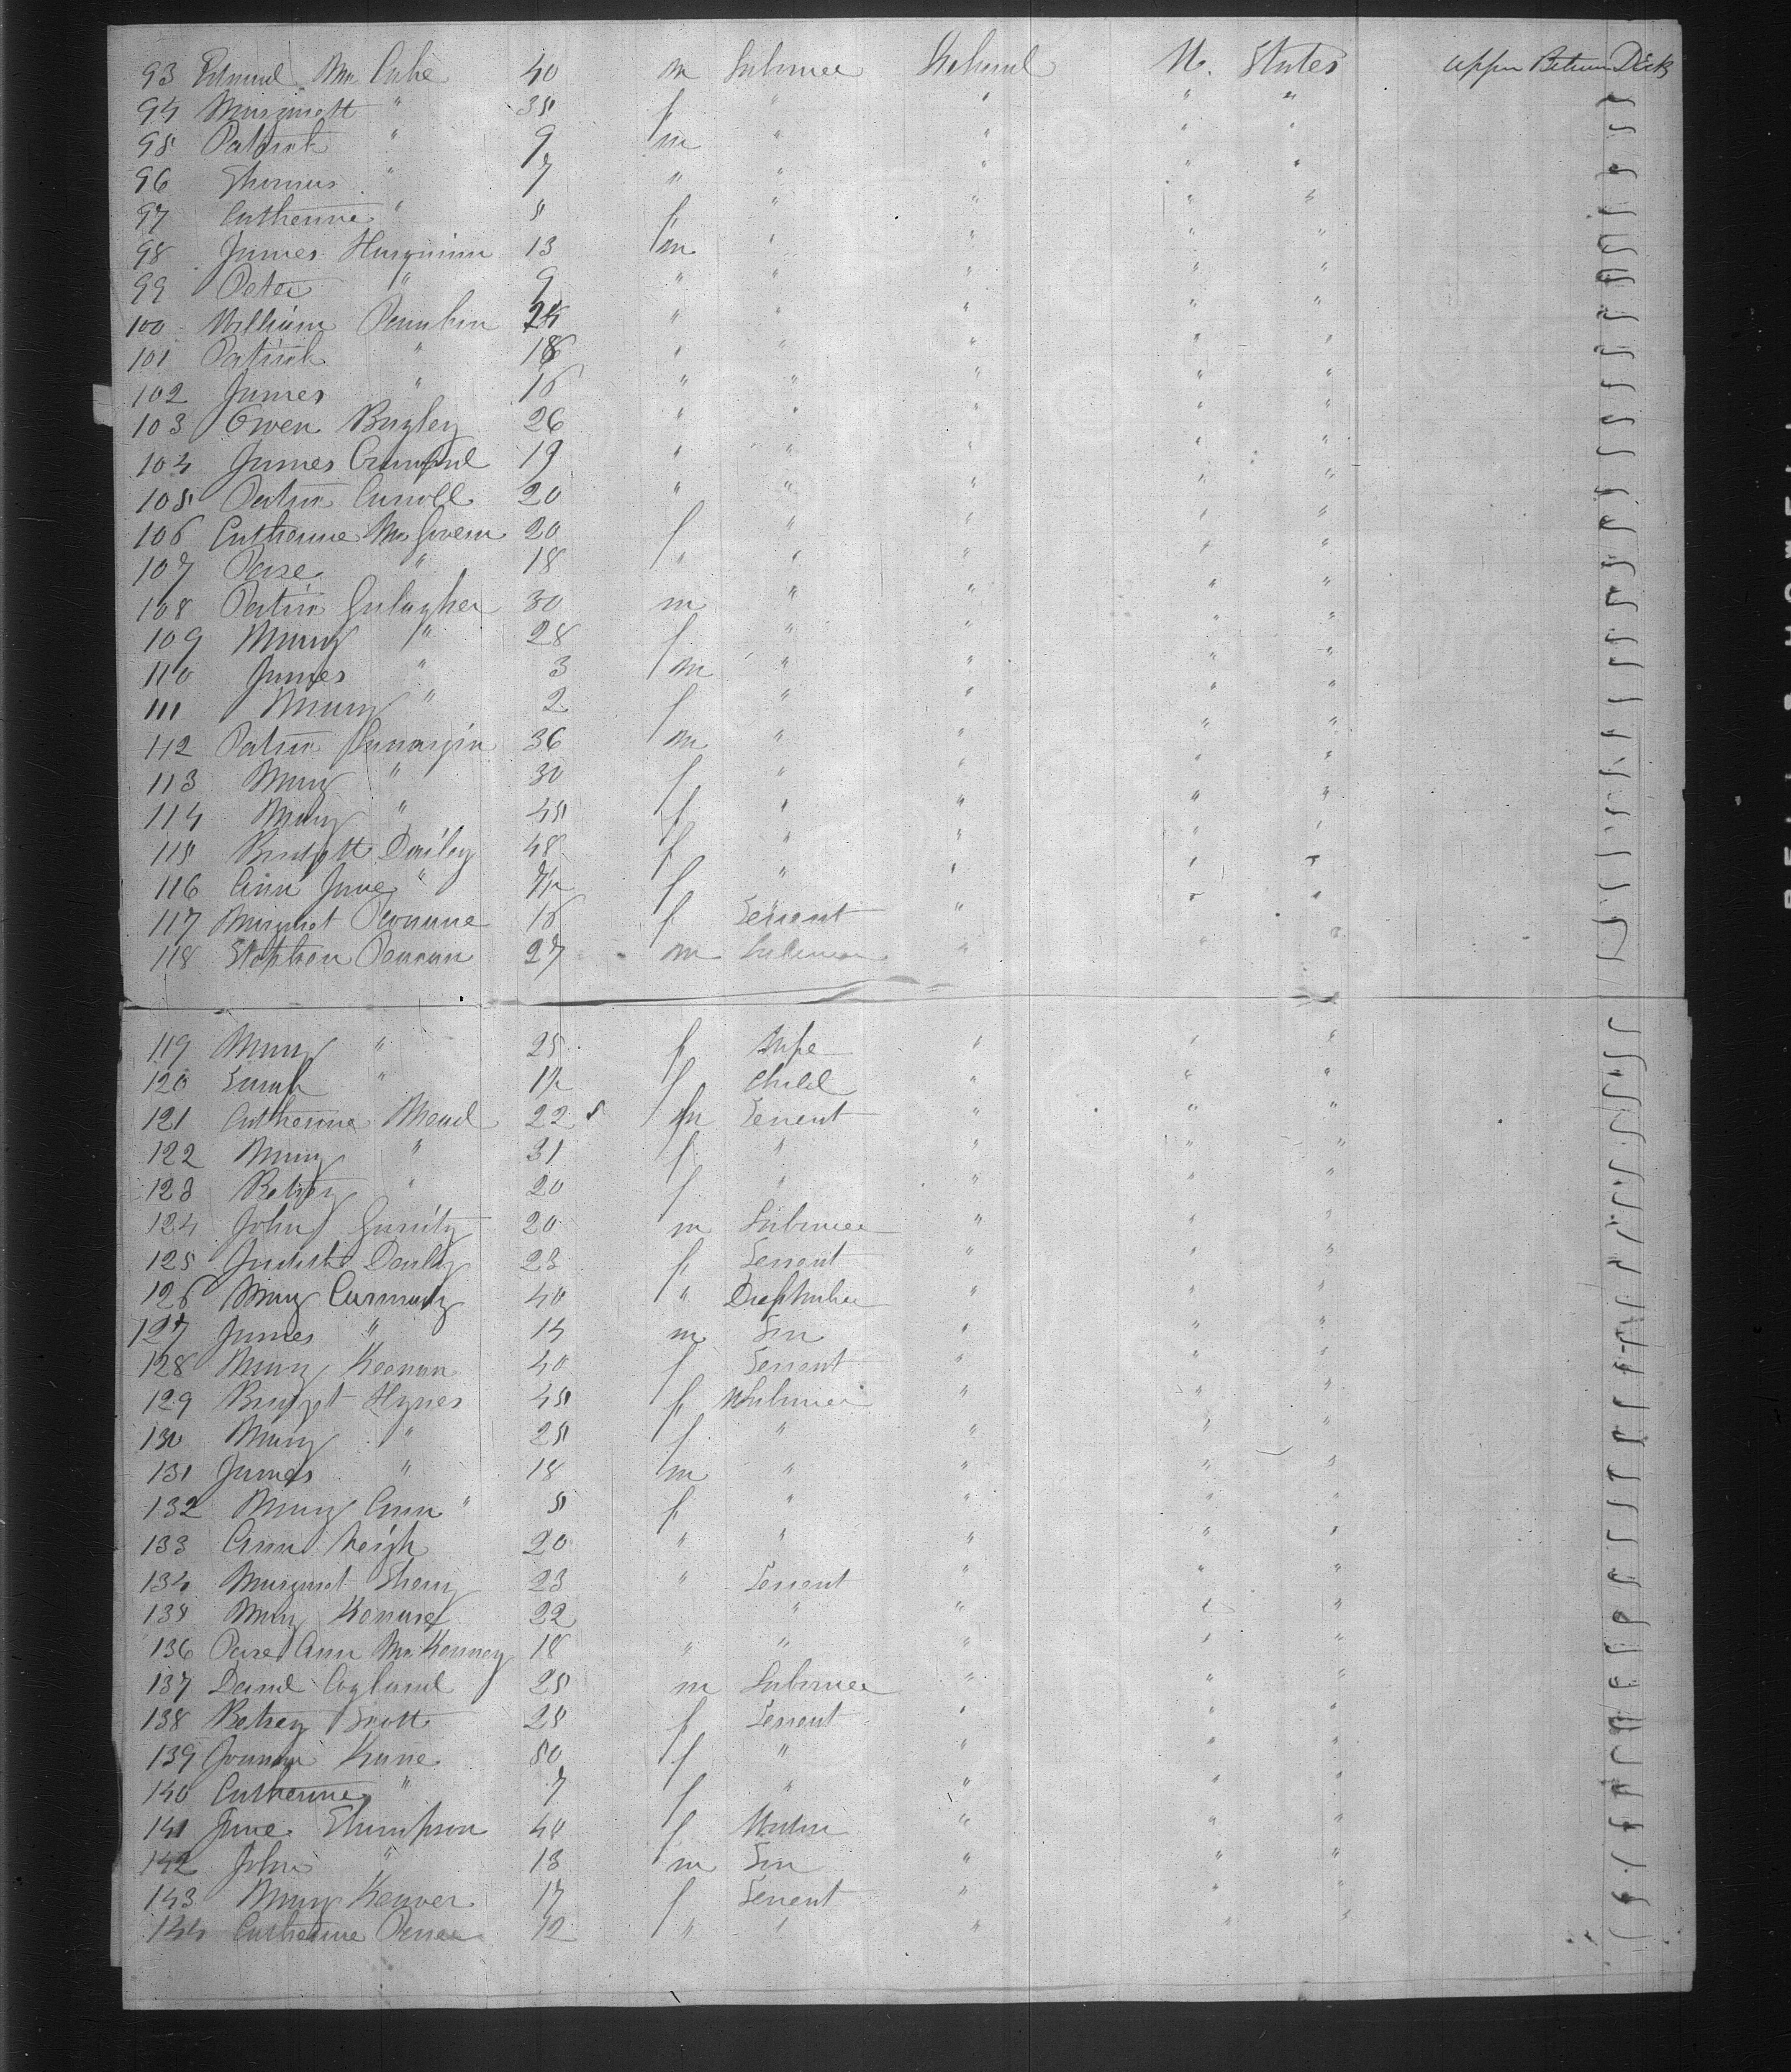 93 Edmund Mc Cabe 40 m Labourer Ireland U. States Upper Between Deck
94 Margarett " 35 f " " " "
95 Patrick " 9 m " " " "
96 Thomas " 7 " " " " "
97 Catherine " 5 f " " " "
98 James 13 m " " " "
99 Peter " 9 " " " " "
100 William 24 " " " " "
101 Patrick " 18 " " " " "
102 James " 16 " " " " "
103 Owen Bagley 26 " " " " "
104 James 19 " " " " "
105 Patric Carroll 20 " " " " "
106 Catherine McGovern 20 f " " " "
107 Rose " 18 " " " " "
108 Patric Galagher 30 m " " " "
109 Mary " 28 f " " " "
110 James " 3 m " " " "
111 Mary " 2 f " " " "
112 Patric 36 m " " " "
113 Mary " 30 f " " " "
114 Mary " 45 f " " " "
115 Bridgett Dailey 48 f " " " "
116 Ann Jane " f " " " "
117 Margaret 16 f Servent " " "
118 Stephen 27 m Labourer " " "
119 Mary " 25 f Wife " " "
120 Sarah " f Child " " "
121 Catherine Mead 22 Servent " " "
122 Mary " 31 f " " " "
123 Betsey " 20 f " " " "
124 John Garrity 20 m Labourer " " "
125 Judith Dailey 23 f Servent " " "
126 Mary 40 " " " "
127 James " 14 m Son " " "
128 Mary Keenan 40 f Servent " " "
129 Bridget Hynes 45 f " " "
130 Mary " 25 f " " " "
131 James " 18 m " " " "
132 Mary Ann " 5 f " " " "
133 Ann Keigh 20 " " " " "
134 Margaret Sherry 23 " Servent " " "
135 Mary 22 " " " "
136 Rose Ann McKenney 18 " " " " "
137 Daniel Cogland 25 m Labourer " " "
138 Betsey Scott 25 f Servent " " "
139 Kane 50 f " " " "
140 Catherine " 7 f " " " "
141 Jane Thompson 40 f " " "
142 John " 13 m Son " " "
143 Mary 17 f Servent " " "
144 Catherine " " " " "